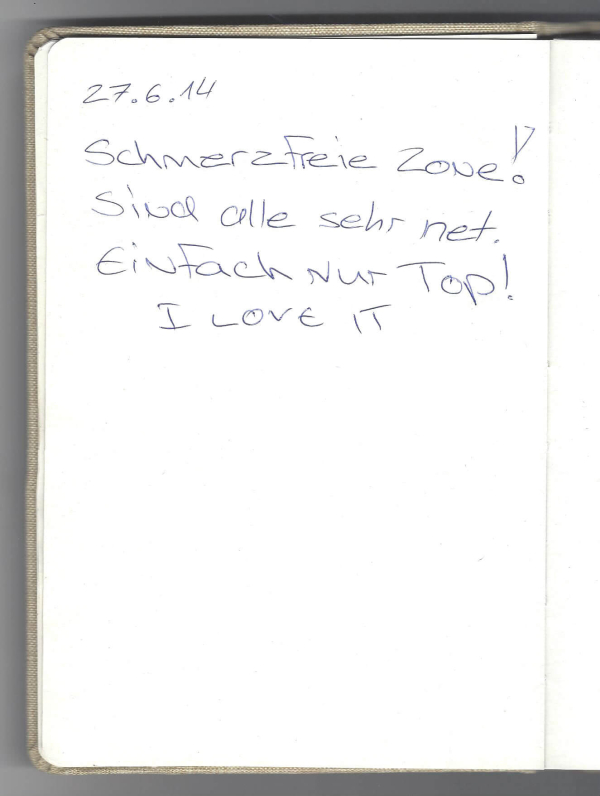 27.6.14
Schmerzfreie Zone!
Sind alle sehr net.
Einfach nur Top!
I LOVE IT